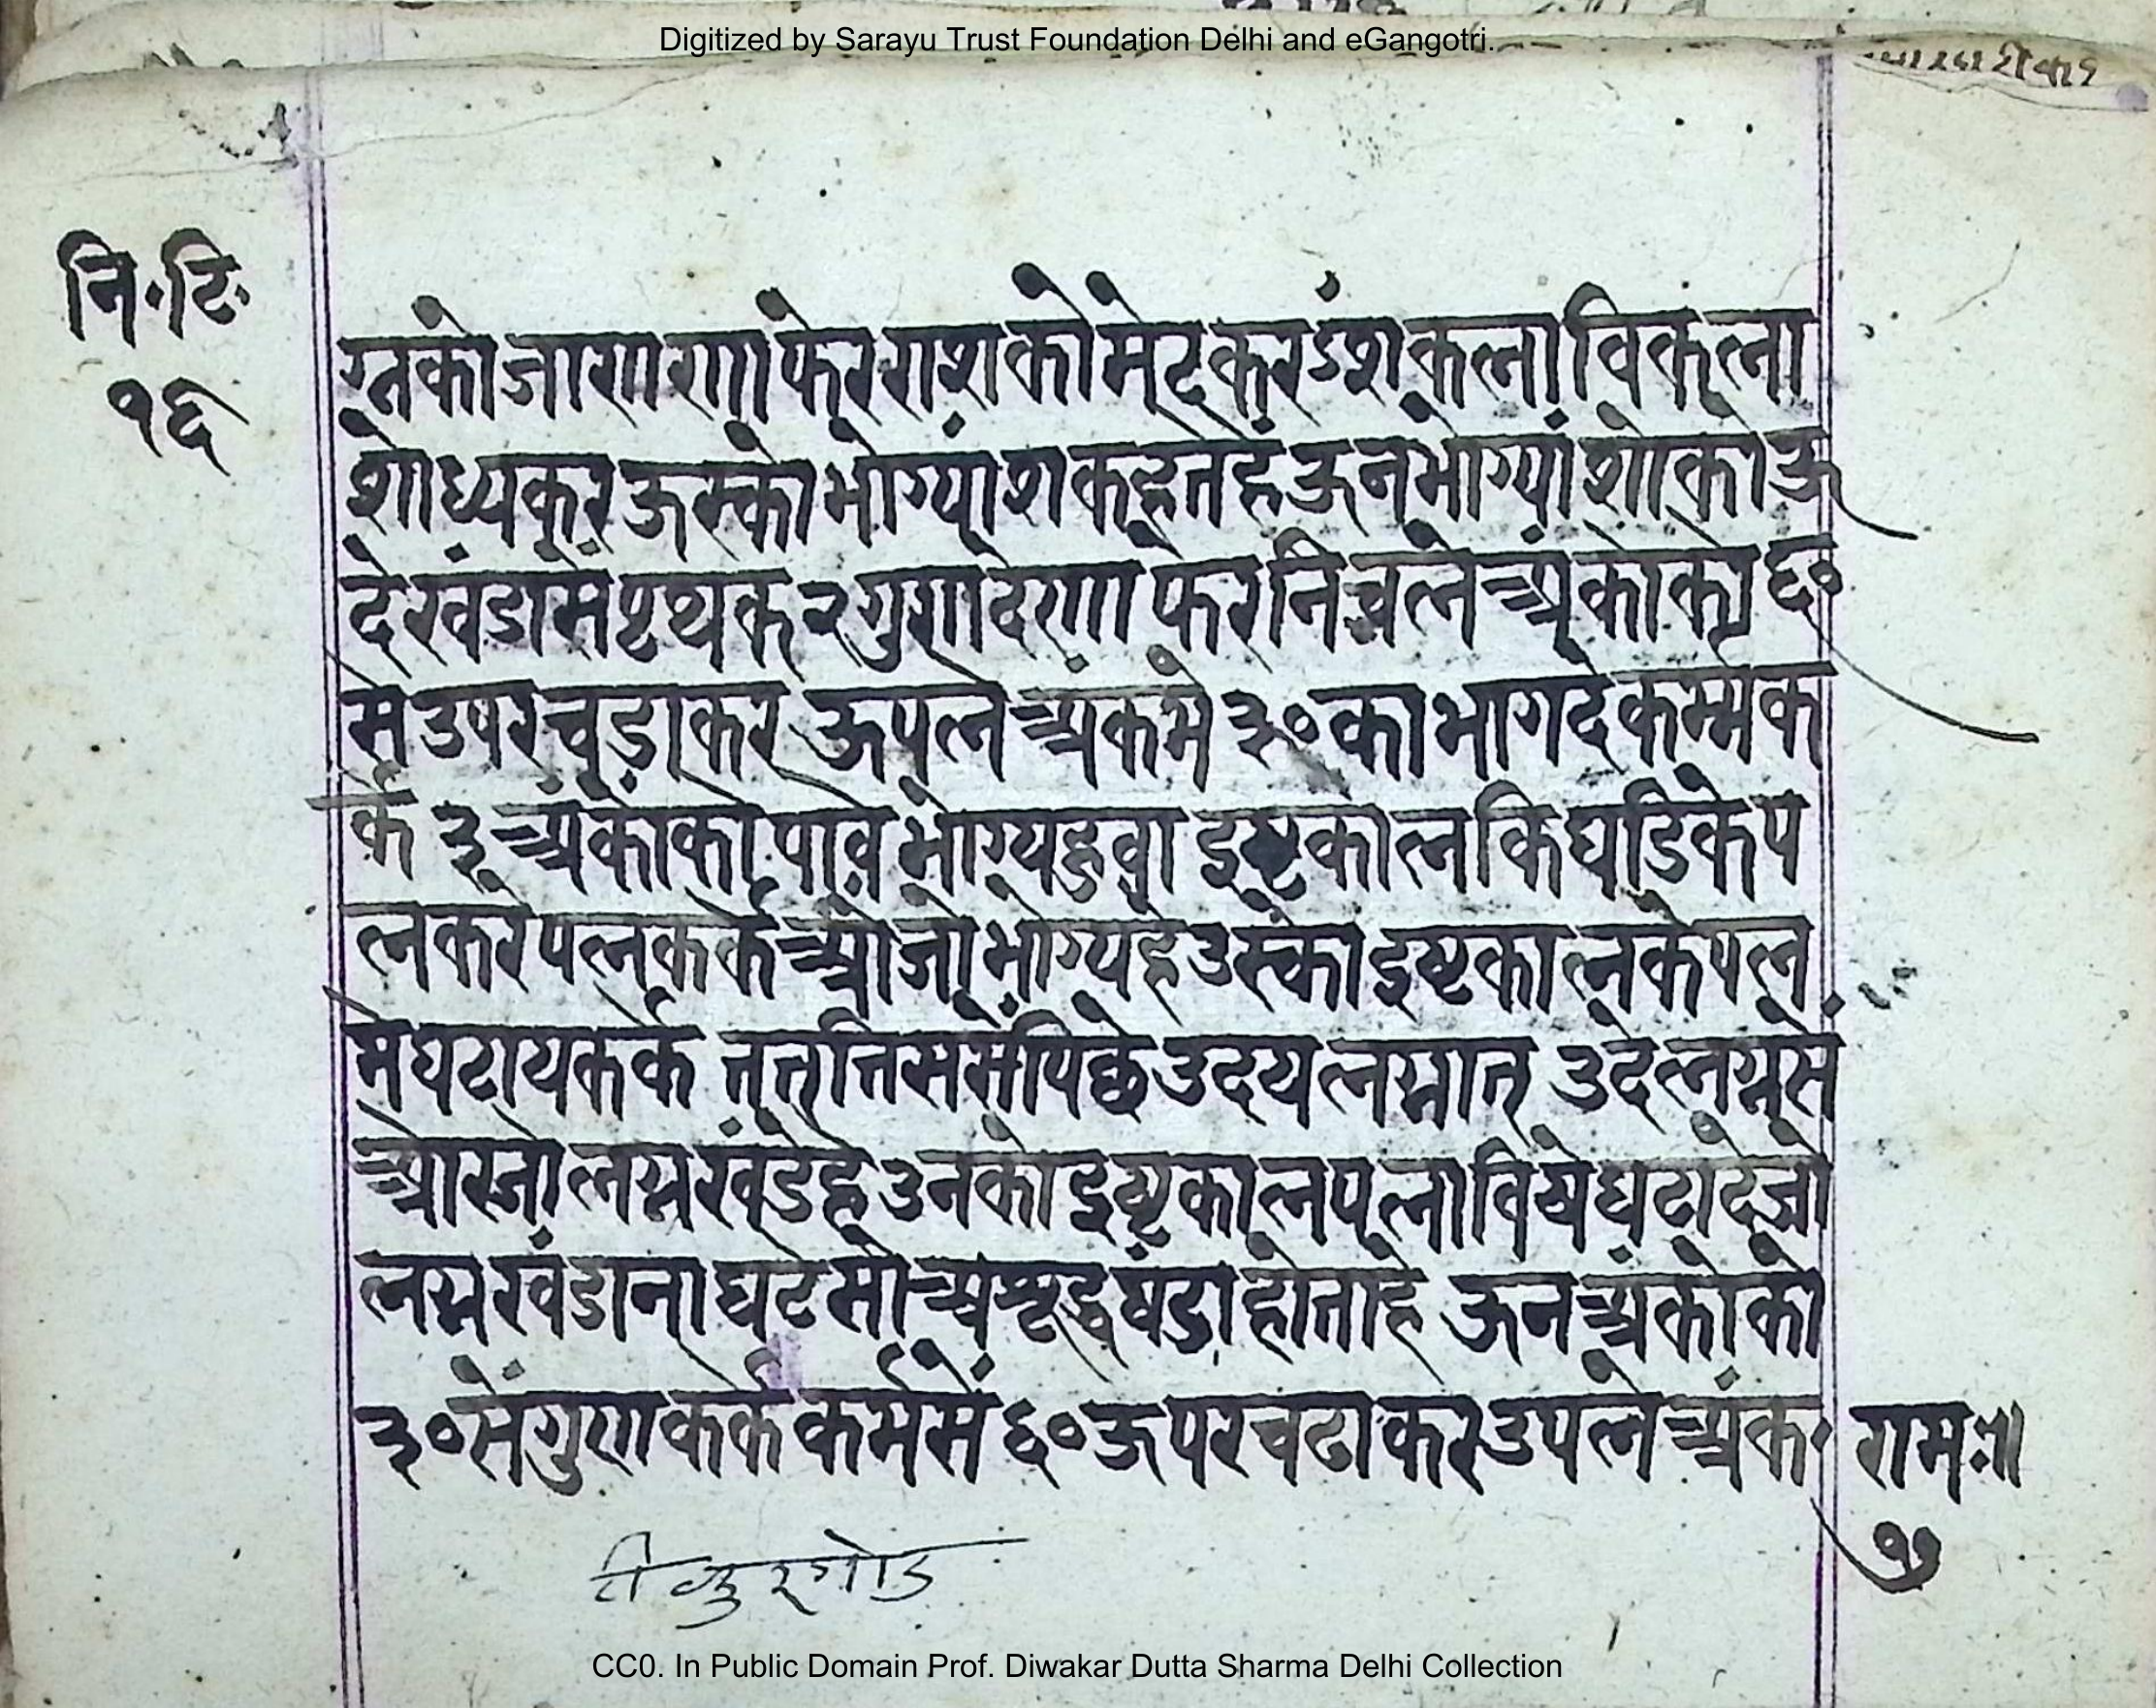 Digitized by Sarayu Trust Foundation Delhi and eGangotri.
नि॰टि॰
१६
ग्नको जाणणा फेर राशको मेटकर ऽंश कला विकला
शोध्यकर ऊस्को भोग्यांश कहत हें ऊन भोग्यांशोको ऊ
दे खंडासें पृथक २ गुणदेणा फेर निचले अंकोको ६०
से उपर चडाकर ऊपले अंकमे ३० का भागदे कर्म्मक
र्के ३ अंकोको पावे भोग्य हुवा इष्टकाल कि घडिके प
ल करे पल कर्के ओ जो भोग्य हे उस्को इष्टकालके पल
मे घटाय कर्के तत् तति ससें पिछे उदयलग्नात् उदेलग्नसें
ओर जो लग्न खंडे हे उनको इष्टकाल पला विषे घटादे जो
लग्न खंडा ना घटे सो अशुद्ध षंडा होता हे ऊन अंकोको
३० सें गुण कर्के कर्मसें ६० ऊपर चढाकर उपले अंक॰
रामः॥
१७
CC0. In Public Domain Prof. Diwakar Dutta Sharma Delhi Collection